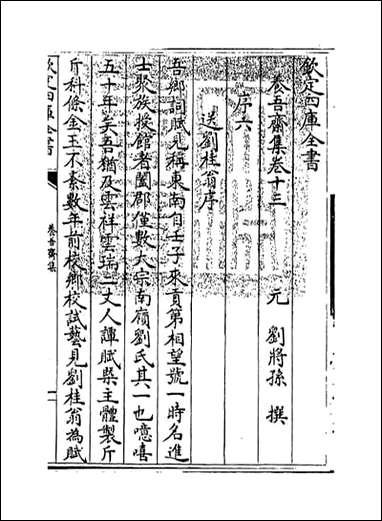 欽定四庫全書
養吾齋集卷十三
元 劉將孫 撰
序六
送劉桂翁序
吾鄉詞賦見稱東南自壬子來貢第相望號一時名進
士聚族授館者闔郡僅數大宗南嶺劉氏其一也噫嘻
五十年矣吾猶及雲祥雲瑞二丈人譚賦槩主體製斤
斤科條金玉不紊數年前校鄉校試藝見劉桂翁為賦
欽定四庫全書
養吾齋集